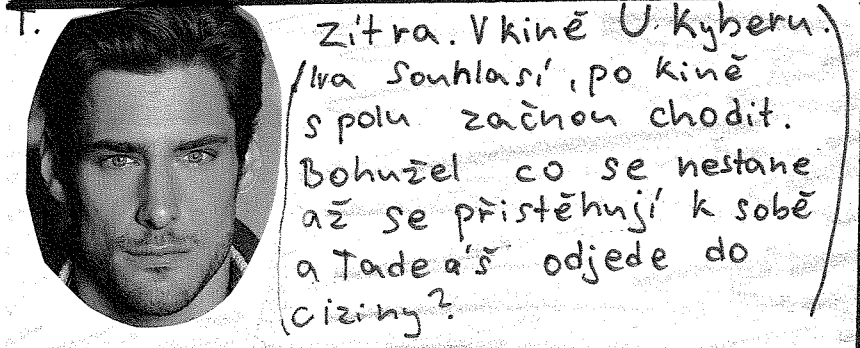 T.
zítra. V kině U Kyberu.
Iva souhlasí, po kině
spolu začnou chodit.
Bohužel co se nestane
až se přistěhují k sobě
a Tadeáš odjede do
ciziny?